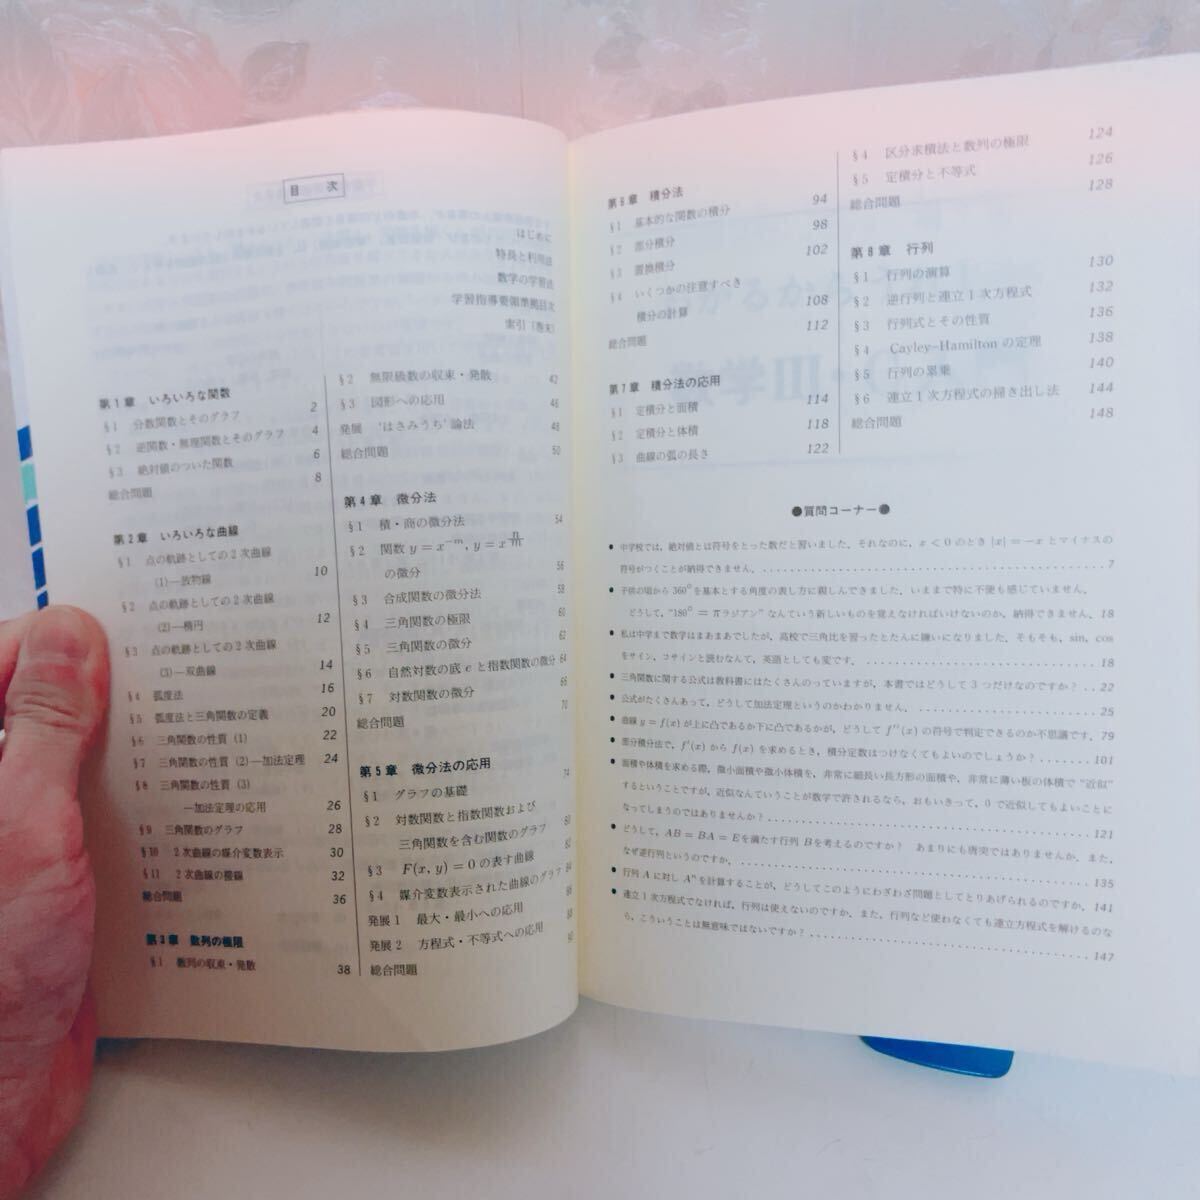 目 次
はじめに
特長と利用法
数学の学習法
学習指導要領準拠目次
索引（巻末）
第1章 いろいろな関数
§1 分数関数とそのグラフ 2
§2 逆関数・無理関数とそのグラフ 4
§3 絶対値のついた関数 6
総合問題 8
第2章 いろいろな曲線
§1 点の軌跡としての2次曲線
(1)―放物線 10
§2 点の軌跡としての2次曲線
(2)―楕円 12
§3 点の軌跡としての2次曲線
(3)―双曲線 14
§4 弧度法 16
§5 弧度法と三角関数の定義 20
§6 三角関数の性質 (1) 22
§7 三角関数の性質 (2)―加法定理 24
§8 三角関数の性質 (3)
―加法定理の応用 26
§9 三角関数のグラフ 28
§10 2次曲線の媒介変数表示 30
§11 2次曲線の接線 32
総合問題 36
第3章 数列の極限
§1 数列の収束・発散 38
§2 無限級数の収束・発散 42
§3 図形への応用 46
発展 ‘はさみうち’論法 48
総合問題 50
第4章 微分法
§1 積・商の微分法 54
§2 関数 y = x^{-m}, y = x^{n/m}
の微分 56
§3 合成関数の微分法 58
§4 三角関数の極限 60
§5 三角関数の微分 62
§6 自然対数の底 e と指数関数の微分 64
§7 対数関数の微分 66
総合問題 70
第5章 微分法の応用
§1 グラフの基礎 74
§2 対数関数と指数関数および
三角関数を含む関数のグラフ 80
§3 F(x, y) = 0 の表す曲線 82
§4 媒介変数表示された曲線のグラフ 84
発展1 最大・最小への応用 86
発展2 方程式・不等式への応用 88
総合問題 90
第6章 積分法
§1 基本的な関数の積分 94
§2 部分積分 98
§3 置換積分 102
§4 いくつかの注意すべき
積分の計算 108
総合問題 112
第7章 積分法の応用
§1 定積分と面積 114
§2 定積分と体積 118
§3 曲線の弧の長さ 122
§4 区分求積法と数列の極限 124
§5 定積分と不等式 126
総合問題 128
第8章 行列
§1 行列の演算 130
§2 逆行列と連立1次方程式 132
§3 行列式とその性質 136
§4 Cayley–Hamilton の定理 138
§5 行列の累乗 140
§6 連立1次方程式の掃き出し法 144
総合問題 148
●質問コーナー●
● 中学校では，絶対値とは符号をとった数だと習いました．それなのに，x < 0 のとき |x| = −x とマイナスの
符号がつくことが納得できません． 7
● 子供の頃から 360° を基本とする角度の表し方に親しんできました．いままで特に不便も感じていません．
どうして，“180° = π ラジアン” なんていう新しいものを覚えなければいけないのか，納得できません． 18
● 私は中学まで数学はまあまあでしたが，高校で三角比を習ったとたんに嫌いになりました．そもそも，sin, cos
をサイン，コサインと読むなんて，英語としても変です． 18
● 三角関数に関する公式は教科書にはたくさんのっていますが，本書ではどうして3つだけなのですか？ 22
● 公式がたくさんあって，どうして加法定理というのかわかりません． 25
● 曲線 y = f(x) が上に凸であるか下に凸であるかが，どうして f''(x) の符号で判定できるのか不思議です． 79
● 部分積分法で，f'(x) から f(x) を求めるとき，積分定数はつけなくてもよいのでしょうか？ 101
● 面積や体積を求める際，微小面積や微小体積を，非常に細長い長方形の面積や，非常に薄い板の体積で“近似”
するということですが，近似なんていうことが数学で許されるなら，おもいきって，0 で近似してもよいことに
なってしまうのではありませんか？ 121
● どうして，AB = BA = E を満たす行列 B を考えるのですか？ あまりにも唐突ではありませんか．また，
なぜ逆行列というのですか． 135
● 行列 A に対し Aⁿ を計算することが，どうしてこのようにわざわざ問題としてとりあげられるのですか． 141
● 連立1次方程式でなければ，行列は使えないのですか．また，行列など使わなくても連立方程式を解けるのな
ら，こういうことは無意味ではないですか？ 147